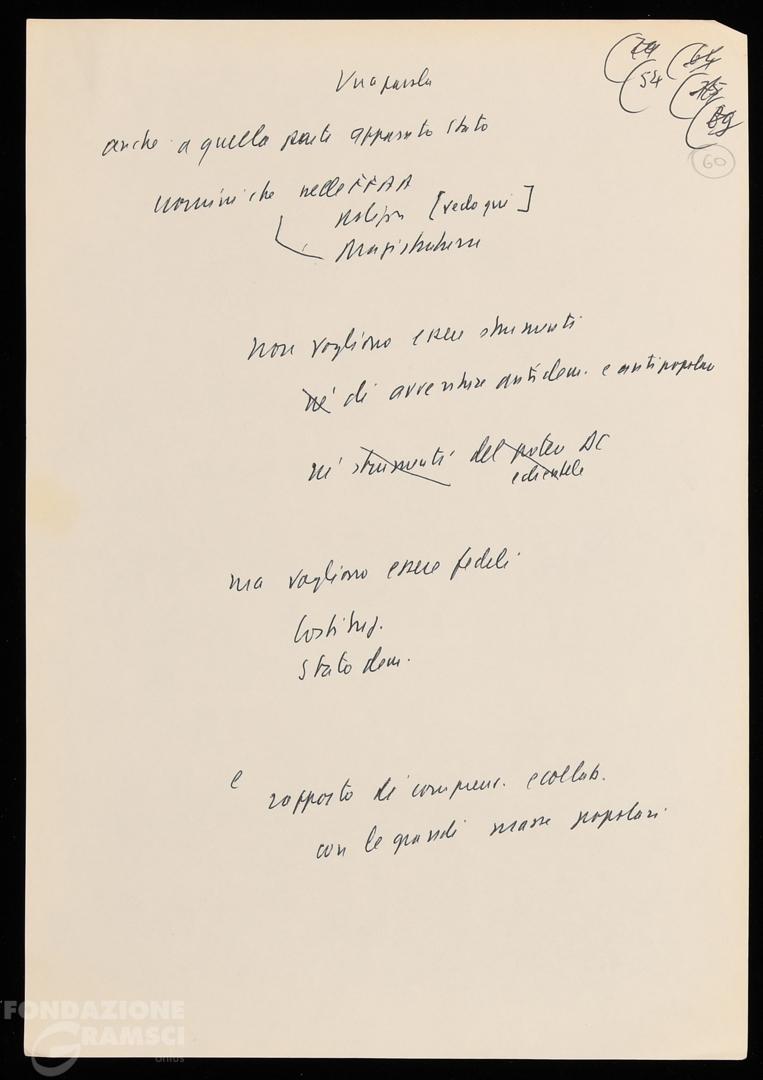 Una parola
anche a quella parte apparato stato
uomini che nelle FFAA
Polizia [vedo qui]
Magistratura
non vogliono essere strumenti
né di avventure antidem. e antipopolari
né strumenti del potere DC
e clientele
ma vogliono essere fedeli
Costituz.
Stato dem.
e rapporto di comprens. e collab.
con le grandi masse popolari
54
60
FONDAZIONE
GRAMSCI
onlus